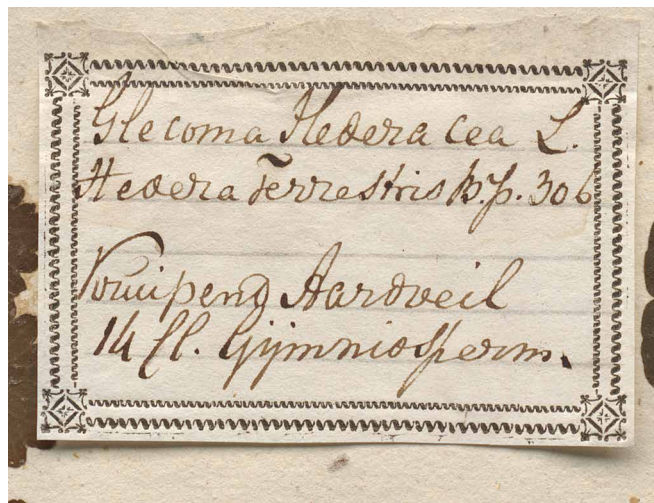 Glecoma Hederacea L.
Hedera Terrestris B.p. 306
Kruipend Aardveil
14 Cl. Gijmniosperm.